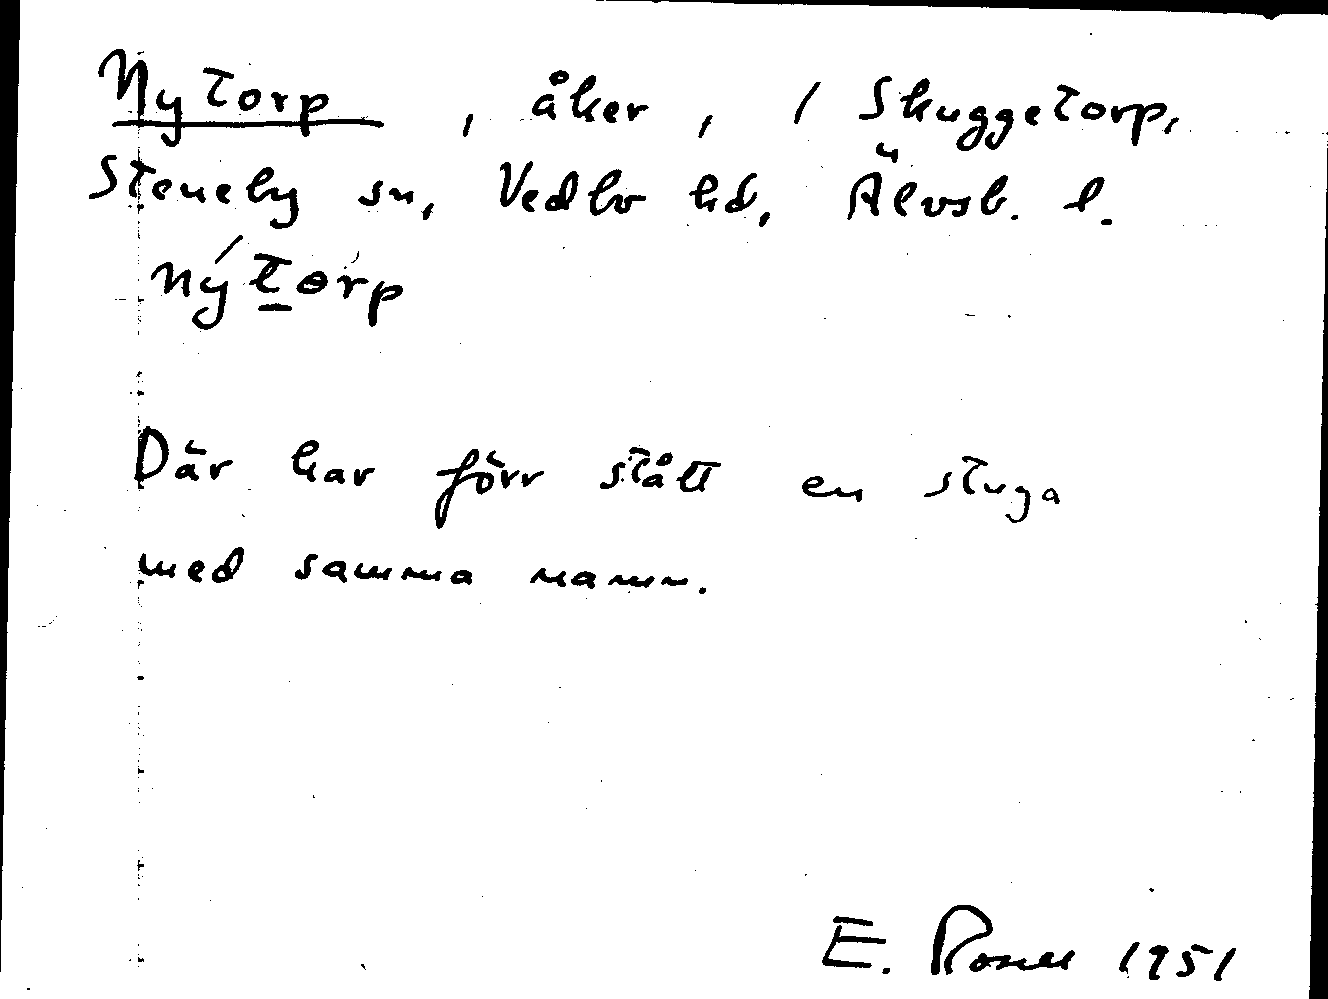 Nytorp, åker, / Skuggetorp,
Steneby sn, Vedbo hd, Älvsb. l.
nýtorp
Där har förr stått en stuga
med samma namn.
E. Rosell 1951